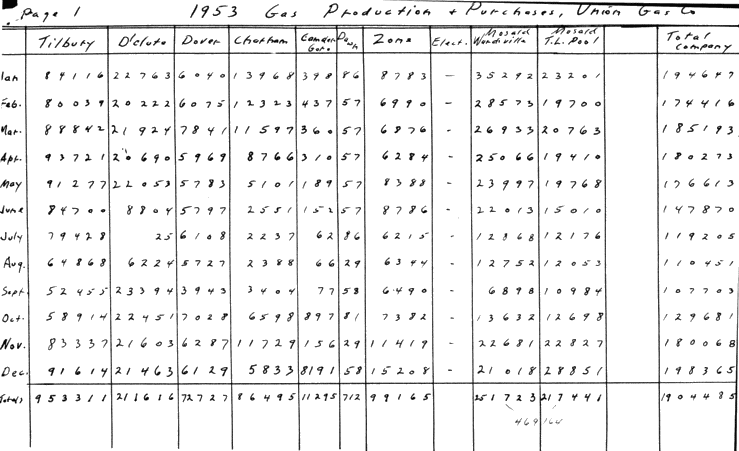 Page 1 1953 Gas Production + Purchases, Union Gas Co
Tilbury D'Clute Dover Chatham Camden Gore Dawn Zone Elect. Mosard T.L. Pool Total Company
Jan 84116 22763 6040 13968 398 86 8783 - 35292 23201 194647
Feb. 80039 20222 6075 12323 437 57 6990 - 28573 19700 174416
Mar. 88842 21924 7841 11597 360 57 6876 - 26933 20763 185193
Apr. 93721 20690 5969 8766 310 57 6284 - 25066 19410 180273
May 91277 22053 5783 5101 189 57 8388 - 23997 19768 176613
June 84700 8804 5797 2551 152 57 8786 - 22013 15010 147870
July 79428 25 6108 2237 62 86 6215 - 12868 12176 119205
Aug. 64868 6224 5727 2388 66 29 6344 - 12752 12053 110451
Sept. 52455 23394 3943 3404 77 58 6490 - 6898 10984 107703
Oct. 58914 22451 7028 6598 897 81 7382 - 13632 12698 129681
Nov. 83337 21603 6287 11729 156 29 11419 - 22681 22827 180068
Dec. 91614 21463 6129 5833 8191 58 15208 - 21018 28851 198365
Totals 953311 211616 72727 86495 11295 712 99165 251723 217441 1904485
469164